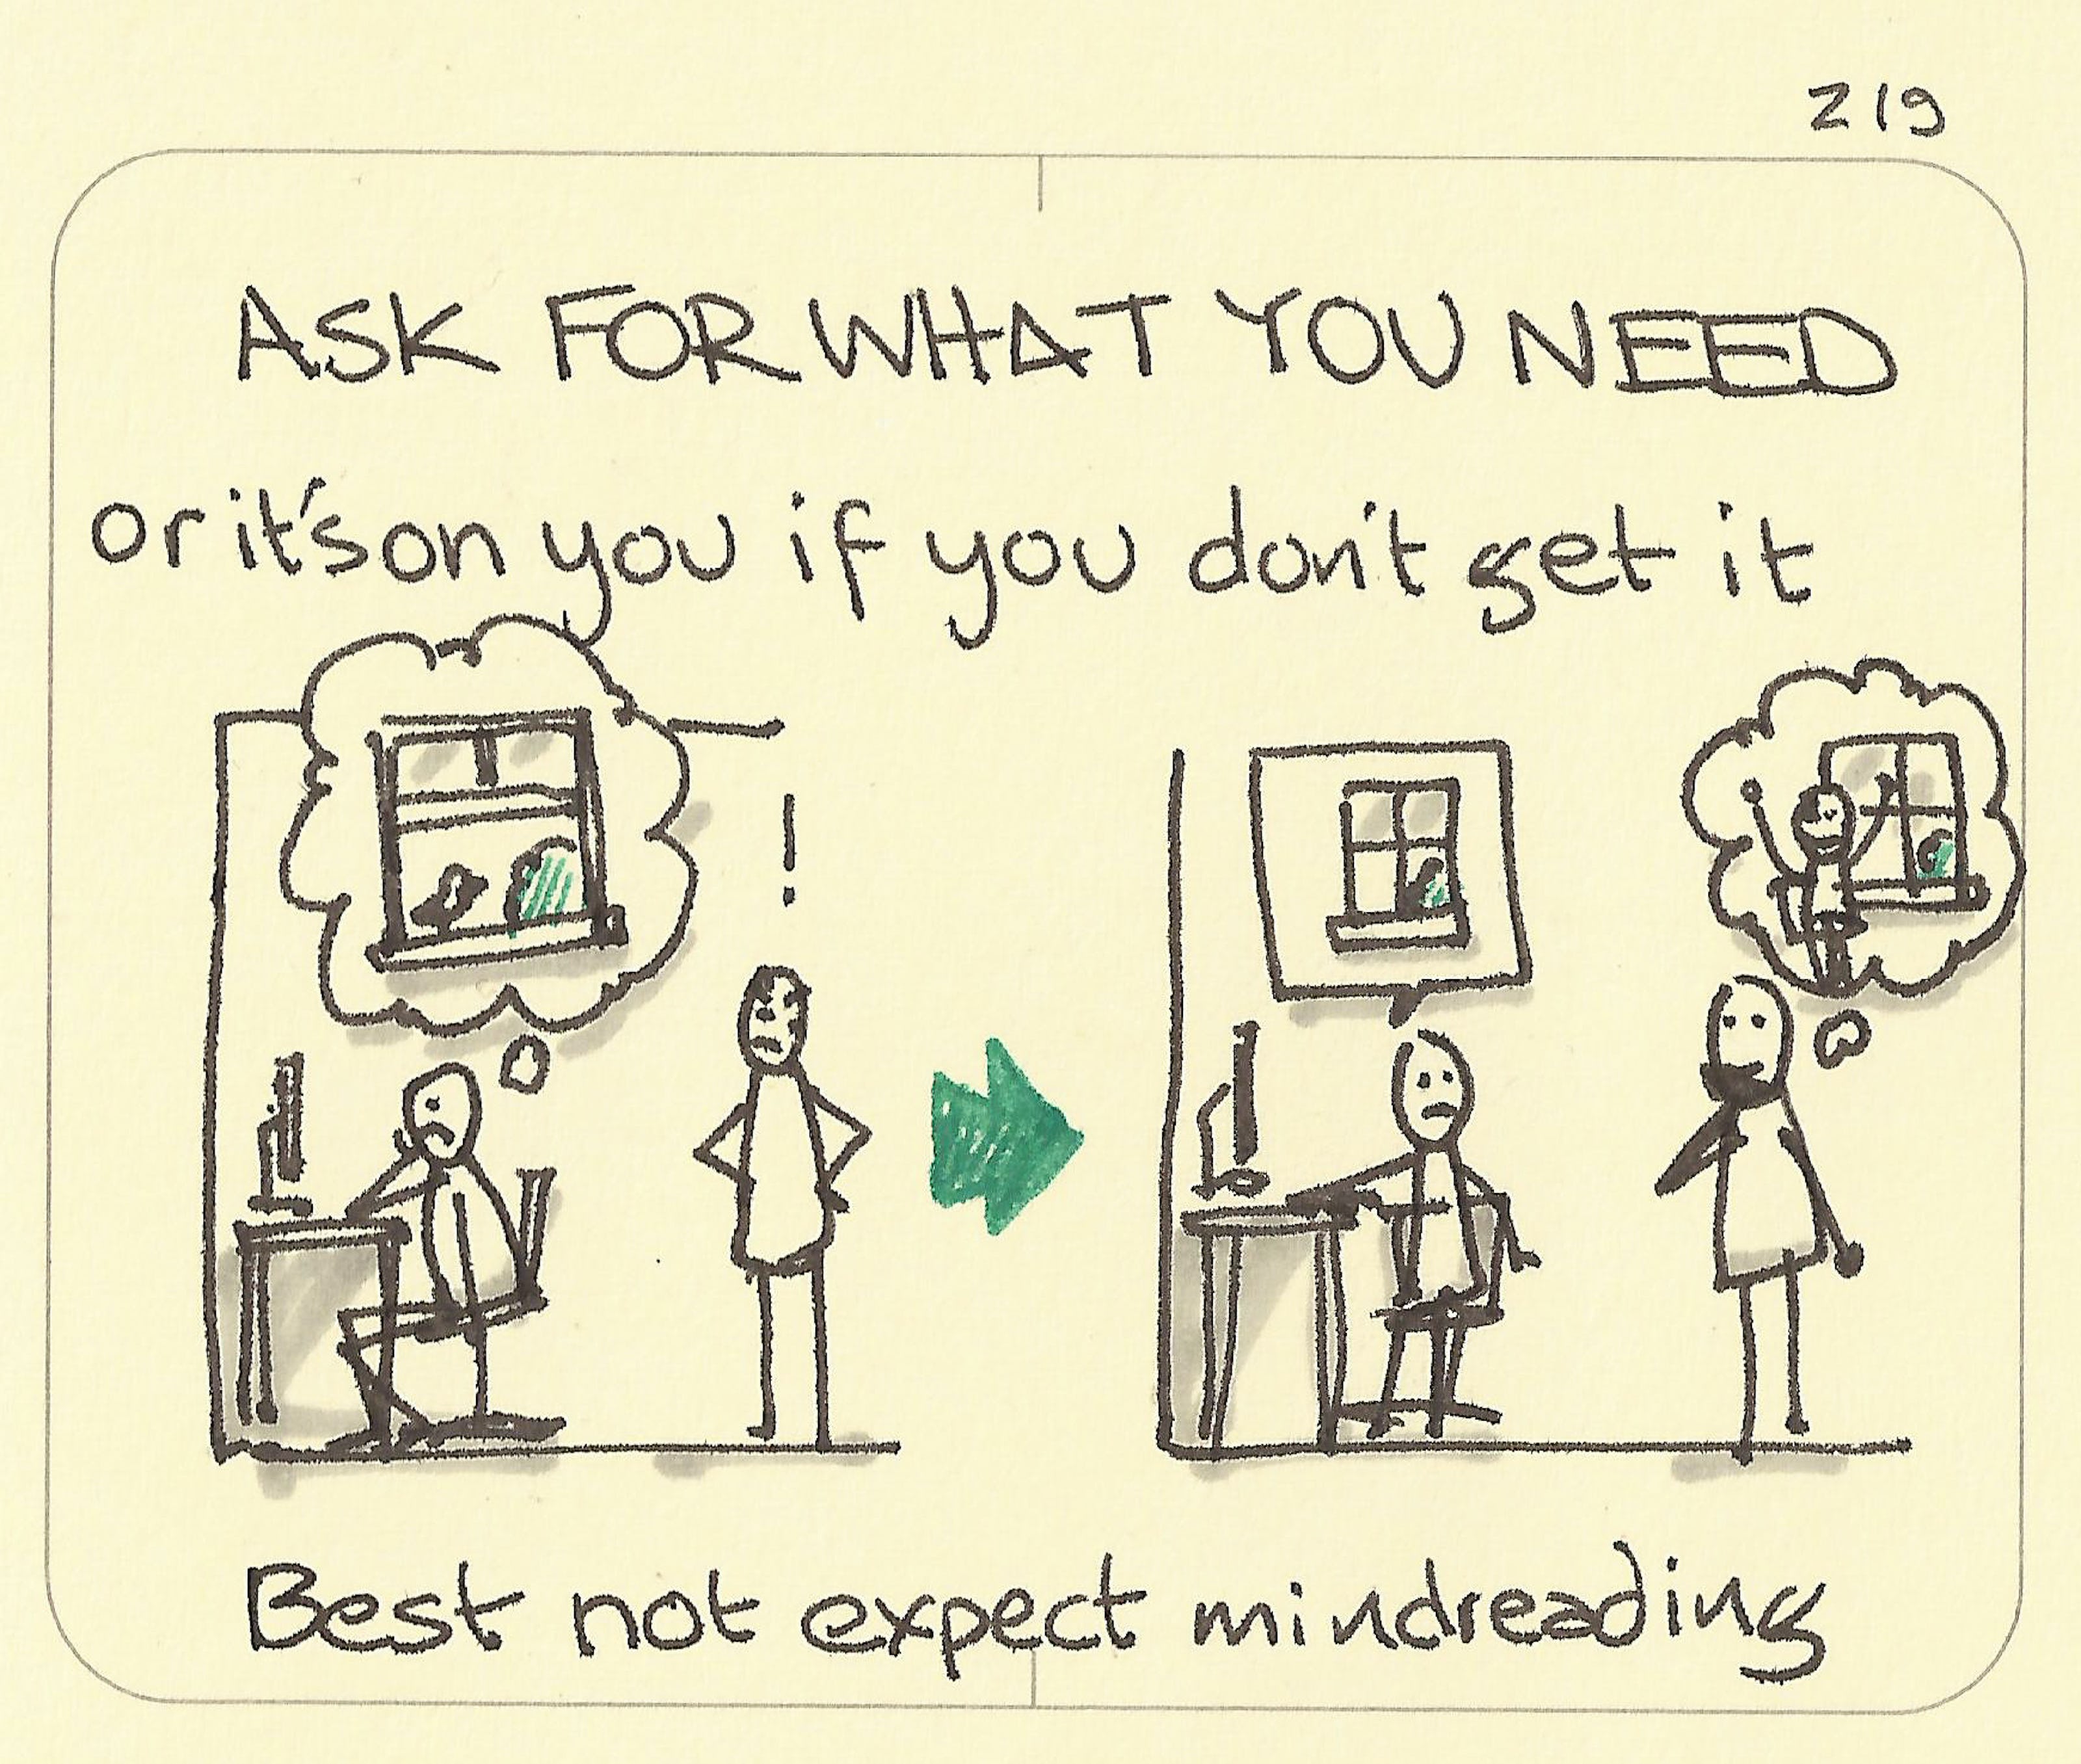 219
ASK FOR WHAT YOU NEED
or it's on you if you don't get it
!
Best not expect mindreading